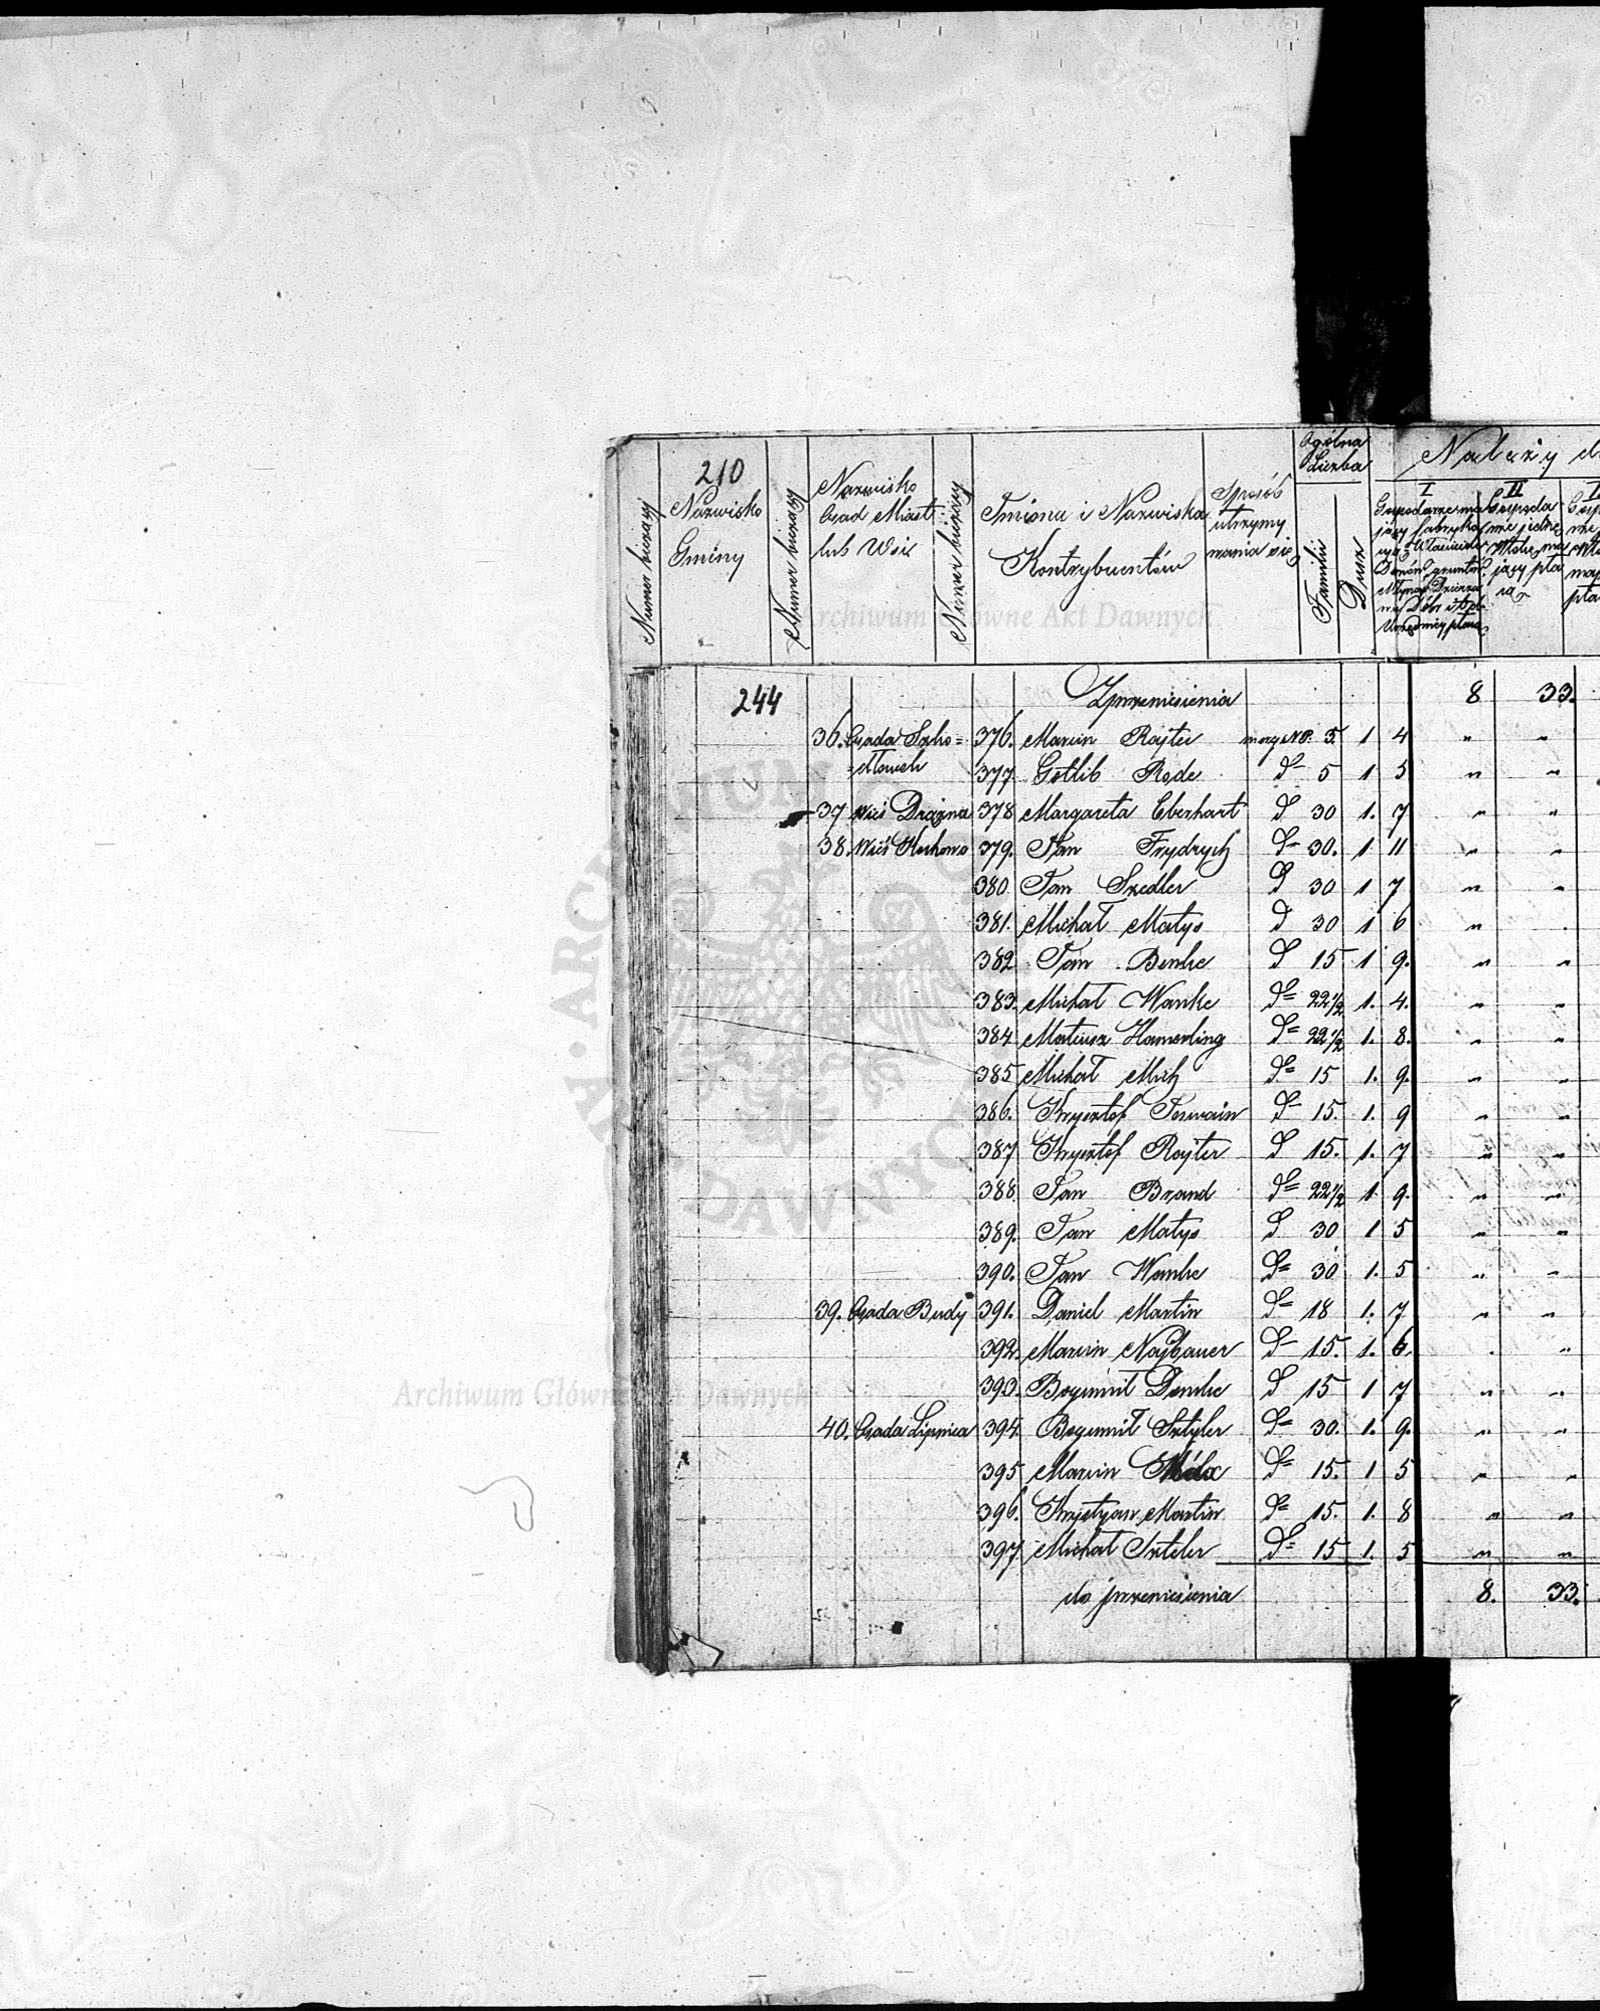 210
Numer bieżący
Nazwisko
Gminy
Numer bieżący
Nazwisko
Osad Miast
lub Wsi
Numer bieżący
Imiona i Nazwiska
Kontrybuentów
Sposób
utrzymy
wania się
Ogólna
Liczba
Familii
Dusz
Należy d
I
II
244
Z przeniesienia 8 33.
36. Osada 376. Marcin Rajter morg. 5. 1 4 " "
377. Gotlib Rode d° 5 1 5 " "
37 Wieś Drążna 378 Margareta Eberhart d° 30 1. 7 " "
38. Wieś 379. Jan Frydrych d° 30. 1 11 " "
380. Jan Szedler d° 30 1 7 " "
381. Michał Matys d° 30 1 6 " .
382. Jan Benke d° 15 1 9. " "
383. Michał Wanke d° 22½ 1. 4. " "
384. Mateusz Hamerling d° 22½ 1. 8. " "
385. Michał Mich d° 15 1. 9. " "
386. Krysztof d° 15. 1. 9 " "
387. Krysztof Rojter d° 15. 1. 7 " "
388. Jan Brand d° 22½ 1 9. " "
389. Jan Matys d° 30 1 5 " "
390. Jan Wanke d° 30 1. 5 " "
39. Osada Budy 391. Daniel Martin d° 18 1. 7 " "
392. Marcin Naybauer d° 15. 1. 6. . "
393. Bogumił Demke d° 15 1 7 " "
40. Osada Lipnica 394. Bogumił Sztyler d° 30. 1. 9. " "
395. Marcin d° 15. 1 5 " "
396. Krystyan Martin d° 15. 1. 8 " "
397. Michał Szteler d° 15 1. 5 " "
do przeniesienia 8. 33.
Archiwum Główne Akt Dawnych
Archiwum Główne Akt Dawnych